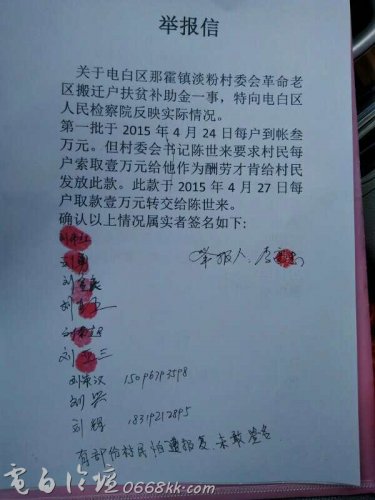 举报信
关于电白区那霍镇淡粉村委会革命老
区搬迁户扶贫补助金一事，特向电白区
人民检察院反映实际情况。
第一批于 2015 年 4 月 24 日每户到帐叁
万元。但村委会书记陈世来要求村民每
户索取壹万元给他作为酬劳才肯给村民
发放此款。此款于 2015 年 4 月 27 日每
户取款壹万元转交给陈世来。
确认以上情况属实者签名如下：
举报人：李
刘
刘
刘
刘
刘
刘 三
刘荣汉 15096793598
刘兴
刘辉 18319212895
有部份村民怕遭报复未敢签名
電白论坛 0668kk.com